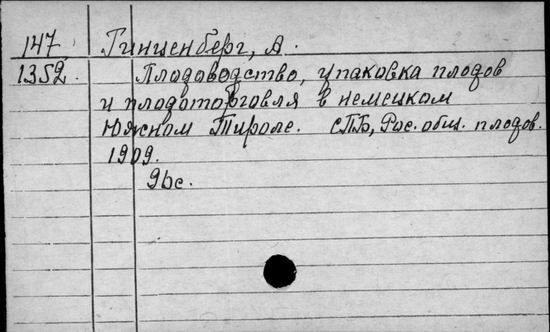 147 Гинценберг, А.
1352. Плодоводство, упаковка плодов
и плодоторговля в немецком
Южном Тироле. СПБ, Рос. общ. плодов.
1909.
9bc.